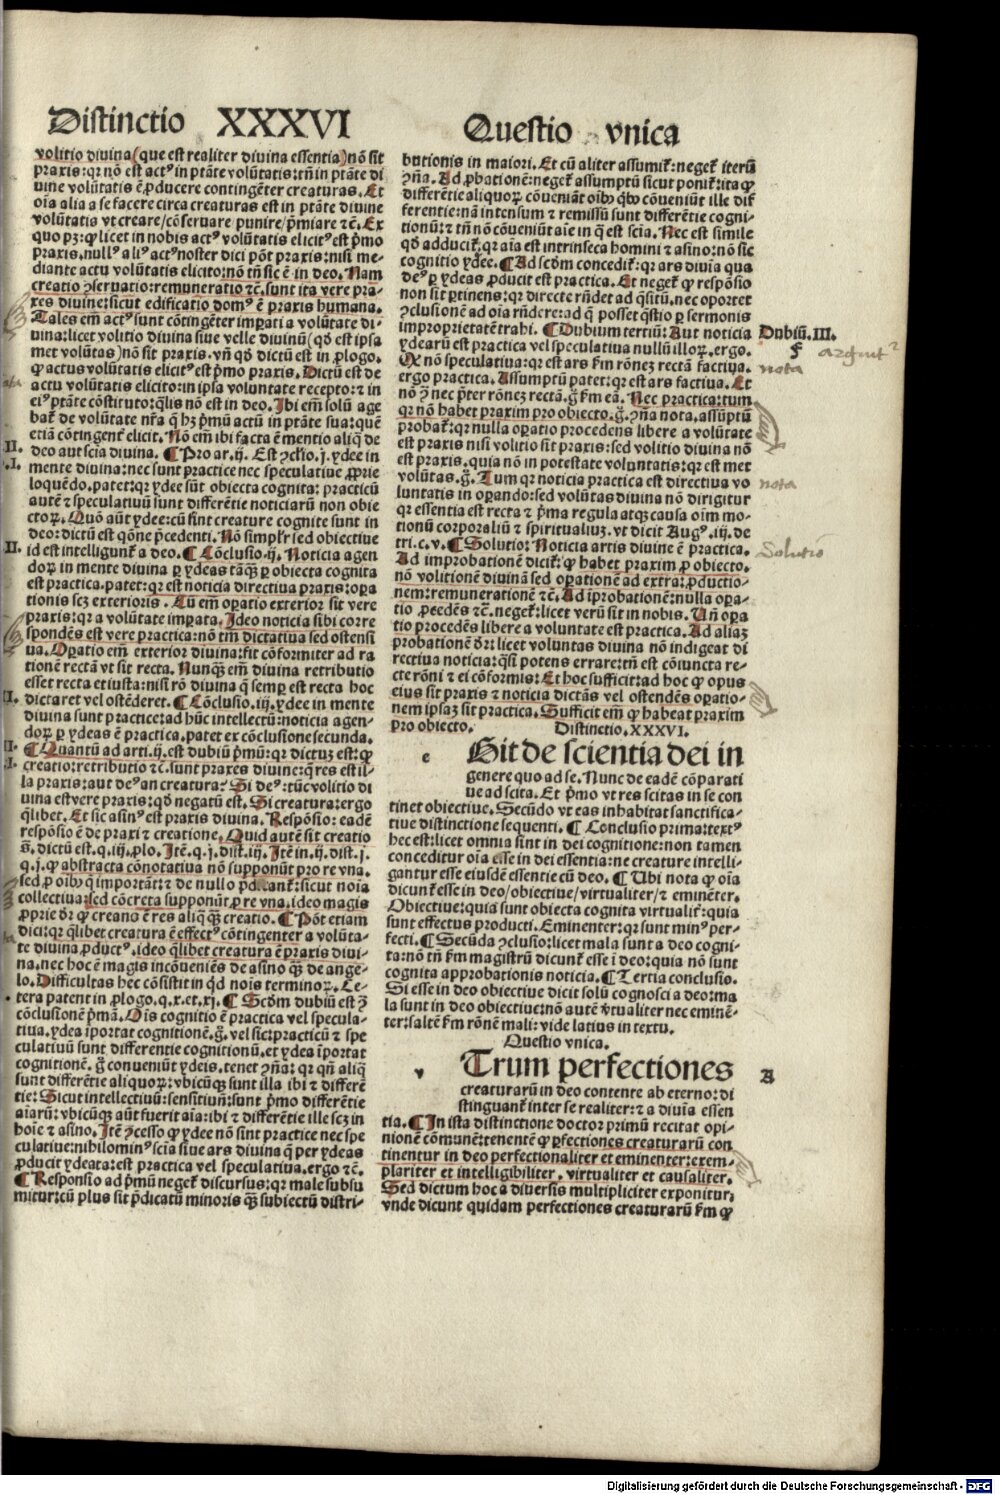 Distinctio XXXVI
volitio diuina (que est realiter diuina essentia) nō sit
praxis: qr nō est actꝰ in ptāte volūtatis: tñ in ptāte di
uine volūtatis ē ꝓducere contingēter creaturas. Et
oīa alia a se facere circa creaturas est in ptāte diuine
volūtatis vt creare/cōseruare punire/p̄miare ⁊c̄. Ex
quo pꝫ: ꝙ licet in nobis actꝰ volūtatis elicitꝰ est p̄mo
praxis. nullꝰ aliꝰ actꝰ noster dici pōt praxis: nisi me-
diante actu volūtatis elicito: nō tñ sic ē in deo. Nam
creatio ꝯseruatio: remuneratio ⁊c̄. sunt ita vere pra-
xes diuine: sicut edificatio domꝰ ē praxis humana.
Tales em̄ actꝰ sunt cōtingēter imp̄ati a volūtate di-
uina: licet volitio diuina siue velle diuinū (qđ est ipsa
met volūtas) nō sit praxis. vñ qđ dictū est in ꝓlogo.
ꝙ actus volūtatis elicitꝰ est p̄mo praxis. Dictū est de
actu volūtatis elicito: in ipsa voluntate recepto: ⁊ in
eiꝰ ptāte cōstituto: q̄lis nō est in deo. Ibi em̄ solū age
bat̄ de volūtate nr̄a q̄ hꝫ p̄mū actū in ptāte sua: quē
etiā cōtingent̄ elicit. Nō em̄ ibi facta ē mentio aliq̄ de
deo aut scīa diuina. ¶ Pro ar. ij. Est ꝯclo. j. ydee in
mente diuina: nec sunt practice nec speculatiue ꝓprie
loquēdo. patet: qr ydee sūt obiecta cognita: practicū
autē ⁊ speculatiuū sunt differētie noticiarū non obie
ctoꝝ. Quō aūt ydee: cū sint creature cognite sunt in
deo: dictū est qōne p̄cedenti. Nō simpl̄r sed obiectiue
id est intelligunt̄ a deo. ¶ Cōclusio. ij. Noticia agen
doꝝ in mente diuina ꝑ ydeas tāq̄ꝫ ꝑ obiecta cognita
est practica. patet: qr est noticia directiua praxis: oꝑa
tionis scꝫ exterioris. Cū em̄ oꝑatio exterior sit vere
praxis: qr a voluntate imꝑata. Ideo noticia sibi corre
spondēs est vere practica: nō tm̄ dictatiua sed ostensi
ua. Oꝑatio em̄ exterior diuina: fit cōformiter ad ra
tionē rectā vt sit recta. Nunqꝫ em̄ diuina retributio
esset recta et iusta: nisi rō diuina q̄ semꝑ est recta hoc
dictaret vel ostēderet. ¶ Cōclusio. iij. ydee in mente
diuina sunt practice: ad hūc intellectū: noticia agen-
doꝝ ꝑ ydeas ē practica. patet ex cōclusione secunda.
¶ Quantū ad arti. ij. est dubiū p̄mū: qr dictuꝫ est: ꝙ
creatio: retributio ⁊c̄. sunt praxes diuine: q̄res est il-
la praxis: aut deꝰ an creatura? Si deꝰ: tūc volitio di
uina est vere praxis: qđ negatū est. Si creatura: ergo
q̄libet. Et sic asinꝰ est praxis diuina. Respōsio: eadē
respōsio ē de praxi ⁊ creatione. Quid autē sit creatio
s̄. dictū est. q. iij. ꝓlo. Itē. q. j. dist. iij. Itē in. ij. dist. j.
q. j. ꝙ abstracta cōnotatiua nō supponūt pro re vna.
collectiua: sed cōcreta supponūt ꝑ re vna. ideo magis
ꝓprie dr̄: ꝙ creans ē res aliq̄ qꝫ creatio. ¶ Pōt etiam
dici: qr q̄libet creatura ē effectꝰ cōtingenter a volūta-
te diuina ꝓductꝰ. ideo q̄libet creatura ē praxis diui-
na. nec hoc ē magis incōueniēs de asino qꝫ de ange-
lo. Difficultas hec cōsistit in qđ nois terminoꝝ. Ce-
tera patent in ꝓlogo. q. x. et. xj. ¶ Scđm dubiū est ꝯ
cōclusionē p̄mā. Ois cognitio ē practica vel specula-
tiua. ydea īportat cognitionē. g̊. vel sic: practicū ⁊ spe
culatiuū sunt differentie cognitionū. et ydea īportat
cognitionē. g̊ conueniūt ydeis. tenet ꝯña: qr qñ aliq̄
sunt differētie aliquoꝝ: vbicūqꝫ sunt illa ibi ⁊ differē
tie: Sicut intellectiuū: sensitiuū: sunt p̄mo differētie
aīarū: vbicūqꝫ aūt fuerit aīa: ibi ⁊ differētie ille scꝫ in
hoīe ⁊ asino. Itē ꝯcesso ꝙ ydee nō sint practice nec spe
culatiue: nihilominꝰ scīa siue ars diuina q̄ per ydeas
ꝓducit ydeata: est practica vel speculatiua. ergo ⁊c̄.
¶ Responsio ad p̄mū neget̄ discursus: qr male subsu
mitur: cū plus sit p̄dicatū minoris qꝫ subiectū distri-
Questio vnica
butionis in maiori. Et cū aliter assumit̄: neget̄ iterū
ꝯña. Ad ꝓbationē: neget̄ assumptū sicut ponit̄: ita ꝙ
differētie aliquoꝝ cōueniāt oībꝰ q̄bꝰ cōueniūt ille dif
ferentie: nā intensum ⁊ remissū sunt differētie cogni-
tionū: ⁊ tñ nō cōueniūt aīe in q̄ est scīa. Nec est simile
qđ adducit̄: qr aīa est intrinseca homini ⁊ asino: nō sic
cognitio ydee. ¶ Ad scđm concedit̄: qr ars diuīa qua
deꝰ ꝑ ydeas ꝓducit est practica. Et neget̄ ꝙ respōsio
non sit ꝑtinens: qr directe rñdet ad q̄situ. nec oportet
ꝯclusionē ad oīa rñdere: ad q̄ posset q̄stio ꝑ sermonis
improprietatē trahi. ¶ Dubium tertiū: Aut noticia
ydearū est practica vel speculatiua nullū illoꝝ. ergo.
Et non speculatiua: qr est ars s̄m rōneꝫ rectā factiua.
ergo practica. Assumptū patet: qr est ars factiua. Et
nō ꝯ nec p̄ter rōneꝫ rectā. g̊ s̄m eā. Nec practica: tum
qr nō habet praxim pro obiecto. g̊. ꝯña nota. assūptū
probat̄: qr nulla oꝑatio procedens libere a volūtate
est praxis nisi volitio sit praxis: sed volitio diuina nō
est praxis. quia nō in potestate voluntatis: qr est met
volūtas. g̊. Tum qr noticia practica est directiua vo
luntatis in oꝑando: sed volūtas diuina nō dirigitur
qr essentia est recta ⁊ p̄ma regula atqꝫ causa oīm mo-
tionū corporaliū ⁊ spiritualiuꝫ. vt dicit Augꝰ. iij. de
tri. c. v. ¶ Solutio: Noticia artis diuine ē practica.
Ad improbationē dicit̄: ꝙ habet praxim ꝓ obiecto.
nō volitionē diuinā sed oꝑationē ad extra: ꝓductio-
nem: remunerationē ⁊c̄. Ad īprobationē: nulla oꝑa-
tio ꝓcedēs ⁊c̄. neget̄: licet verū sit in nobis. Uñ oꝑa
tio procedēs libere a voluntate est practica. Ad aliaꝫ
probationē dr̄: licet voluntas diuina nō indigeat di
rectiua noticia: q̄si potens errare: tñ est cōiuncta re-
cte rōni ⁊ ei cōformis: Et hoc sufficit: ad hoc ꝙ opus
eius sit praxis ⁊ noticia dictās vel ostendēs oꝑatio-
nem ipsaꝫ sit practica. Sufficit em̄ ꝙ habeat praxim
pro obiecto. Distinctio. XXXVI.
e Sit de scientia dei in
genere quo ad se. Nunc de eadē cōparati
ue ad scita. Et p̄mo vt res scitas in se con
tinet obiectiue. Secūdo vt eas inhabitat sanctifica-
tiue distinctione sequenti. ¶ Conclusio prima: textꝰ
hec est: licet omnia sint in dei cognitione: non tamen
conceditur oīa esse in dei essentia: ne creature intelli-
gantur esse eiusdē essentie cū deo. ¶ Ubi nota ꝙ oīa
dicunt̄ esse in deo/obiectiue/virtualiter/⁊ eminēter.
Obiectiue: quia sunt obiecta cognita virtualit̄: quia
sunt effectus producti. Eminenter: qr sunt minꝰ per-
fecti. ¶ Secūda ꝯclusio: licet mala sunt a deo cogni-
ta: nō tñ s̄m magistrū dicunt̄ esse ī deo: quia nō sunt
cognita approbationis noticia. ¶ Tertia conclusio.
Si esse in deo obiectiue dicit solū cognosci a deo: ma
la sunt in deo obiectiue: nō autē v̄tualiter nec eminē-
ter: saltē s̄m rōnē mali: vide latius in textu.
Questio vnica.
v Trum perfectiones
creaturarū in deo contente ab eterno: di
stinguant̄ inter se realiter: ⁊ a diuīa essen
tia. ¶ In ista distinctione doctor primū recitat opi-
nionē cōmunē: tenentē ꝙ ꝑfectiones creaturarū con
tinentur in deo perfectionaliter et eminenter: exem-
plariter et intelligibiliter. virtualiter et causaliter.
Sed dictum hoc a diuersis multipliciter exponitur.
vnde dicunt quidam perfectiones creaturarū s̄m ꝙ
Dubiū. III.
nota
nota
Solutio
A
II.
.I.
II.
II.
II.
.I.
Digitalisierung gefördert durch die Deutsche Forschungsgemeinschaft - DFG